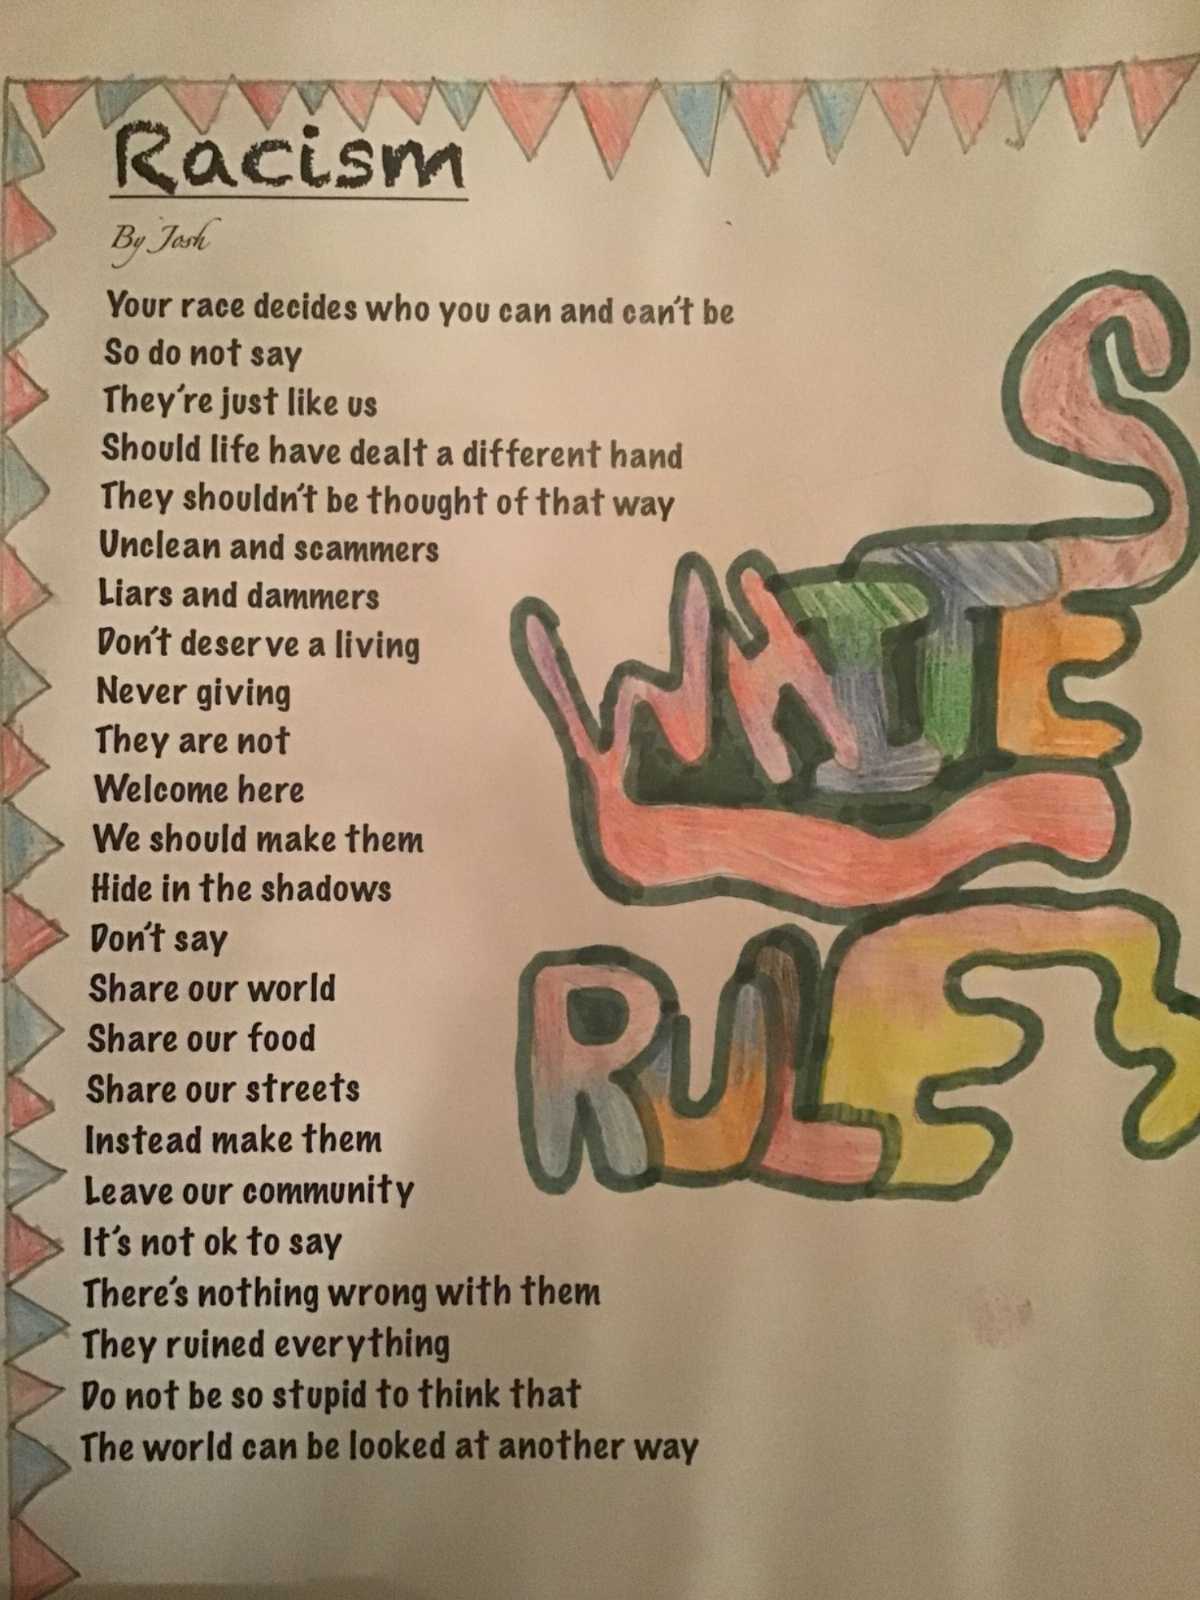 Racism
By Josh
Your race decides who you can and can't be
So do not say
They're just like us
Should life have dealt a different hand
They shouldn't be thought of that way
Unclean and scammers
Liars and dammers
Don't deserve a living
Never giving
They are not
Welcome here
We should make them
Hide in the shadows
Don't say
Share our world
Share our food
Share our streets
Instead make them
Leave our community
It's not ok to say
There's nothing wrong with them
They ruined everything
Do not be so stupid to think that
The world can be looked at another way
WHITES
RULE